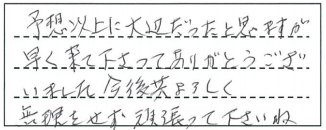 予想以上に大辺だったと思ますが
早く来て下さってありがとうござ
いました今後共よろしく
無理をせず頑張って下さいね